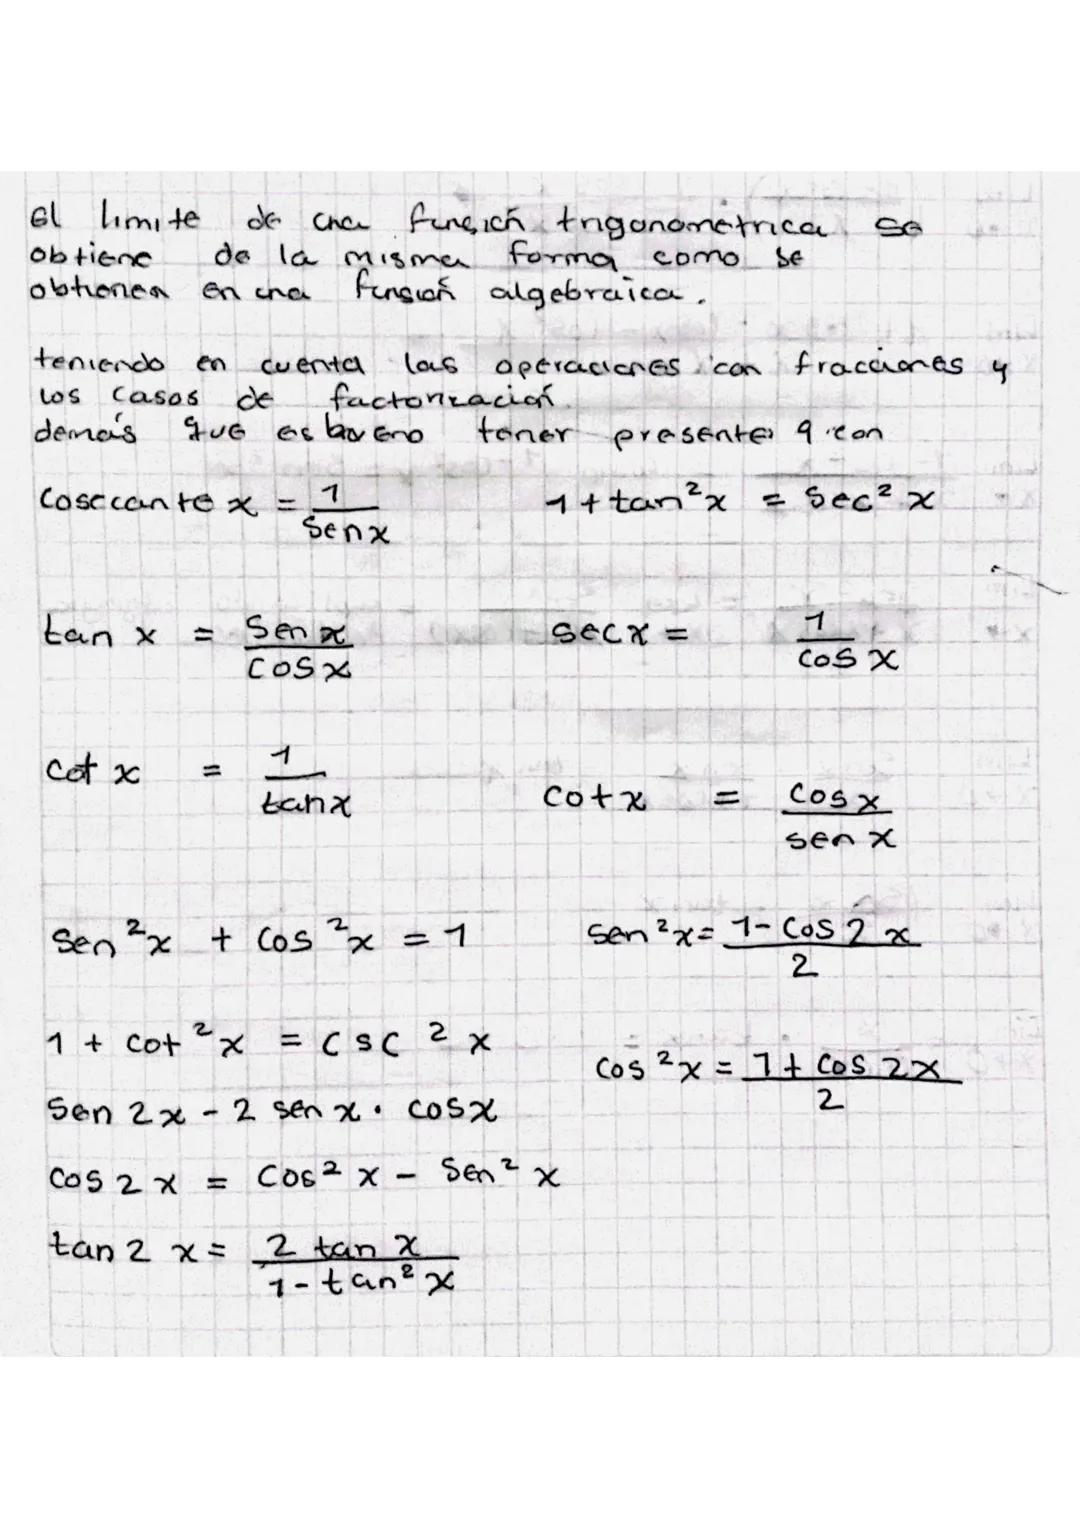 El limite de una funsión trigonometrica se
obtiene de la misma forma como se
obtienen en una funsión algebraica.
teniendo en cuenta las operaciones con fracciones y
los casos de factorización.
demás que es bueno tener presente q con
Cosecante x = 1/Sen x
1 + tan²x = Sec² x
tan x = Sen x/Cos x
sec x = 1/Cos x
Cot x = 1/tan x
Cot x = Cos x/sen x
Sen²x + Cos²x = 1
Sen²x = 1 - Cos 2x/2
1 + Cot²x = Csc²x
Cos²x = 1 + Cos 2x/2
Sen 2x - 2 sen x · Cosx
Cos 2x = Cos² x - Sen² x
tan 2x = 2 tan x/1 - tan² x